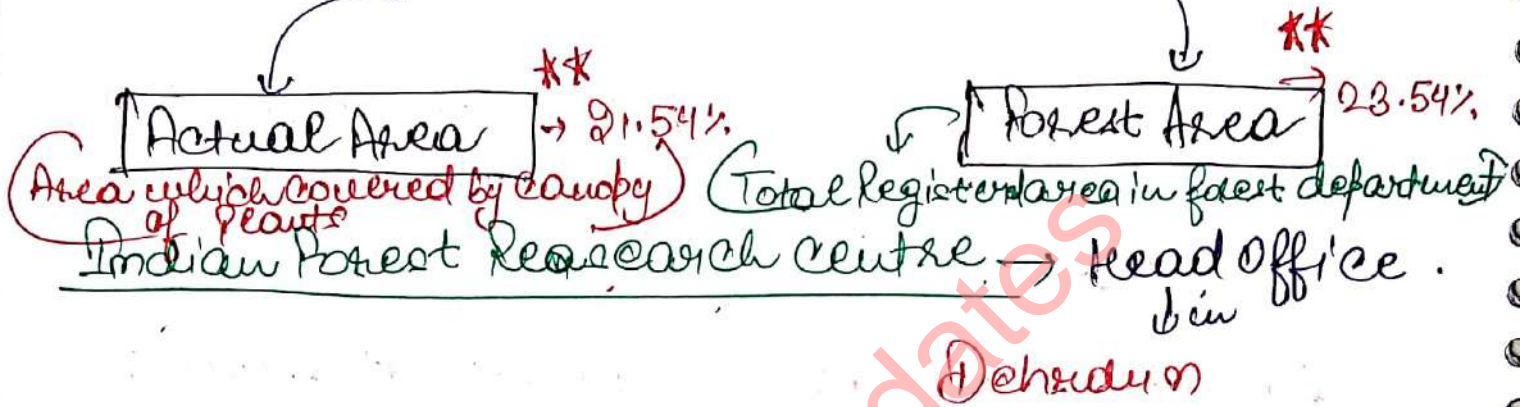 ** **
Actual Area → 21.54% Forest Area → 23.54%
(Area which covered by canopy of Plants) (Total Registerd area in forest department)
Indian Forest Reasearch centre → Head Office.
↓ in
Dehradun
dates